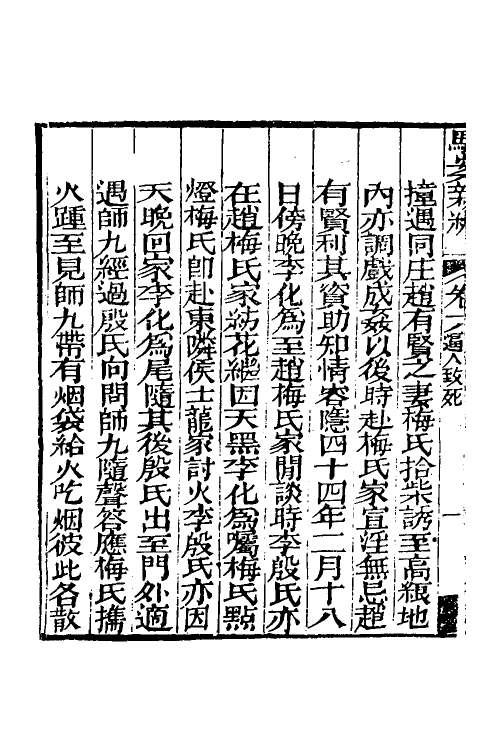 駁案新編 卷 逼人致死 一
撞遇同庄趙有賢之妻梅氏拾柴誘至高粮地
內亦調戲成姦以後時赴梅氏家宣淫無忌趙
有賢利其資助知情容隱四十四年二月十八
日傍晚李化為至趙梅氏家閒談時李殷氏亦
在趙梅氏家紡花繼因天黑李化為囑梅氏點
燈梅氏卽赴東隣侯士龍家討火李殷氏亦因
天晚回家李化為尾隨其後殷氏出至門外適
遇師九經過殷氏向問師九隨聲答應梅氏攜
火踵至見師九帶有烟袋給火吃烟彼此各散